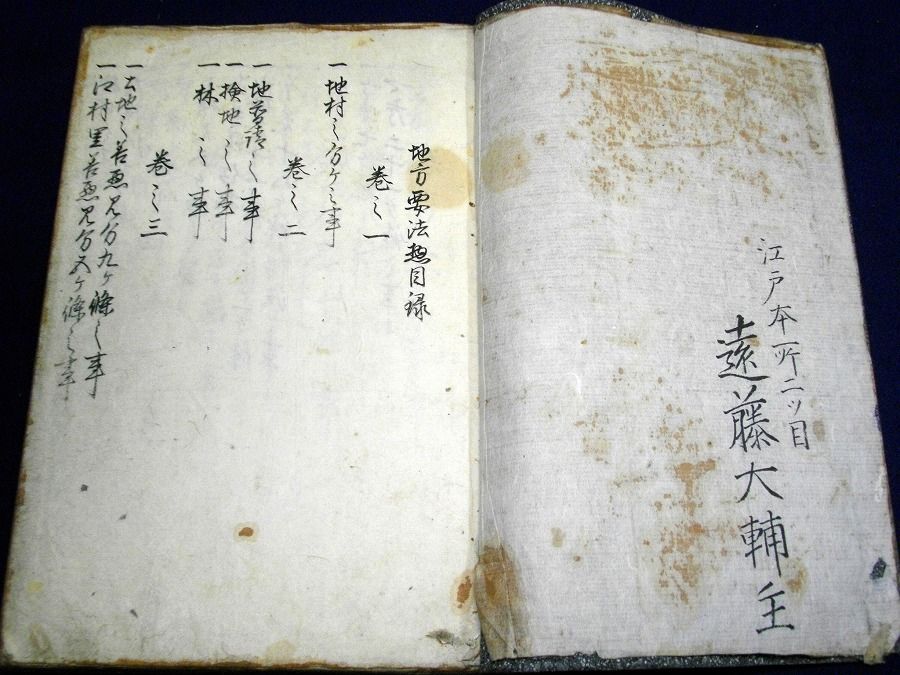 江戸本所二ツ目
遠藤大輔主
地方要法惣目録
巻之一
一地村之分ケ之事
巻之二
一地普請之事
一検地之事
一林之事
巻之三
一土地之善悪見分九ケ條之事
一江村里善悪見分五ケ條之事